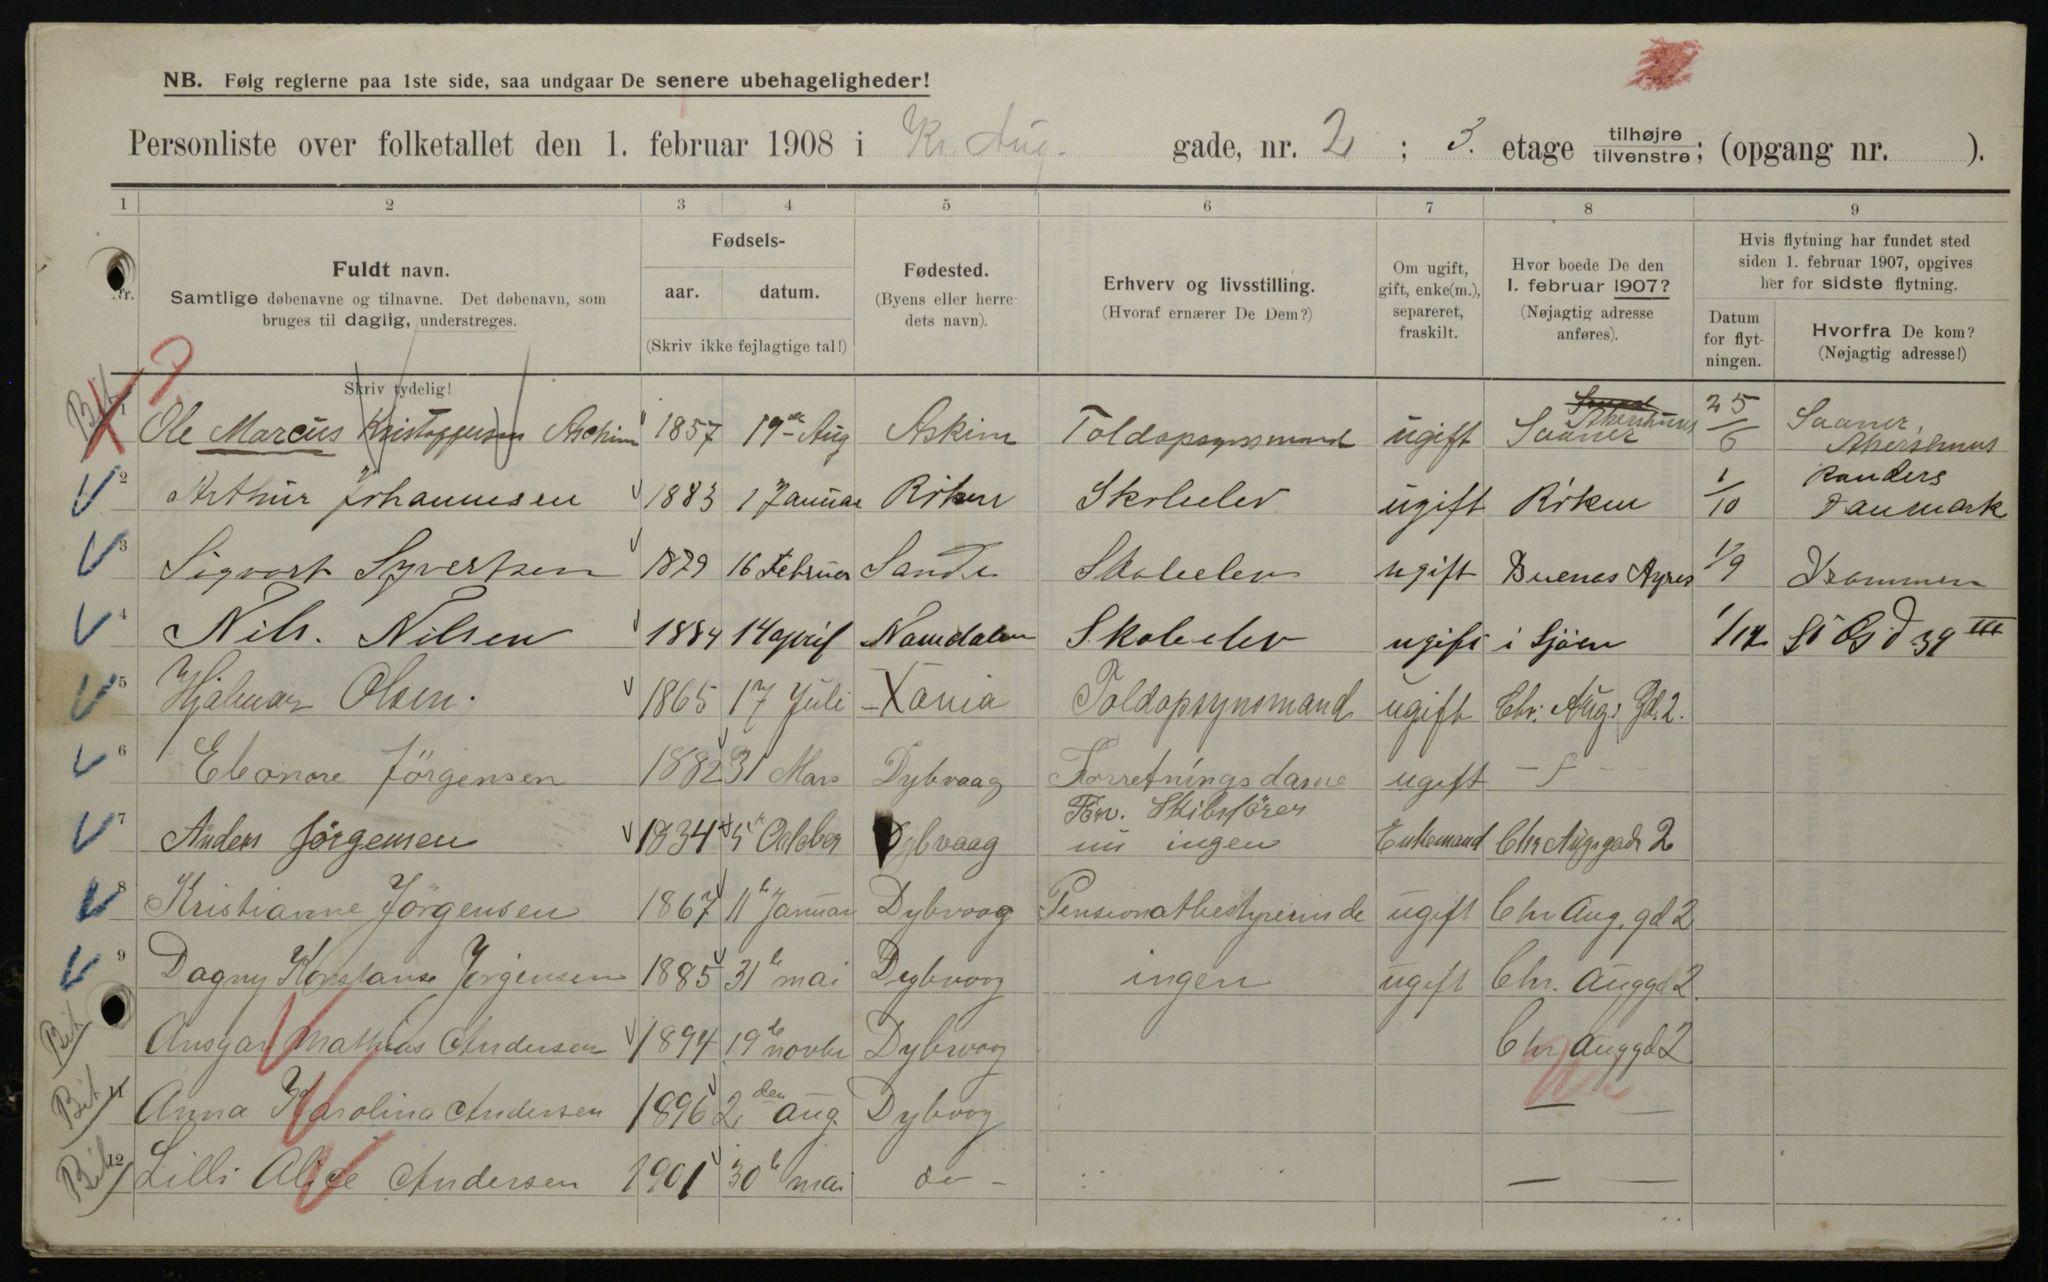 NB. Følg reglerne paa 1ste side, saa undgaar De senere ubehageligheder!
Personliste over folketallet den 1. februar 1908 i Kr. Aug. gade, nr. 2 ; 3. etage tilhøjre tilvenstre; (opgang nr. ).
1 2 3 4 5 6 7 8 9
Nr.
Fuldt navn.
Samtlige døbenavne og tilnavne. Det døbenavn, som
bruges til daglig, understreges.
Skriv tydelig!
Fødsels-
aar. datum.
(Skriv ikke fejlagtige tal!)
Fødested.
(Byens eller herre-
dets navn).
Erhverv og livsstilling.
(Hvoraf ernærer De Dem?)
Om ugift,
gift, enke(m.),
separeret,
fraskilt.
Hvor boede De den
1. februar 1907?
(Nøjagtig adresse
anføres).
Hvis flytning har fundet sted
siden 1. februar 1907, opgives
her for sidste flytning.
Datum
for flyt-
ningen.
Hvorfra De kom?
(Nøjagtig adresse!)
Bit 1 Ole Marcus Kristoffersen Askim 1857 19de Aug Askim Toldopsynsmand ugift Saaner Akershus 25/6 Saaner, Akershuus
2 Arthur Johannesen 1883 1 Januar Röken Skoleelev ugift Röken 1/10 Randers Danmark
3 Sigvart Syvertsen 1879 16 Februar Sande Skoleelev ugift Buenos Ayres 1/9 Drammen
4 Nils. Nilsen 1884 14 april Namdalen Skoleelev ugift i Sjöen 1/12 St Ol Gd 39 III
5 Hjalmar Olsen. 1865 17 Juli Xania Toldopsynsmand ugift Chr. Aug. Gd. 2.
6 Eleonore Jörgensen 1882 31 Mars Dybvaag Forretningsdame ugift
7 Anders Jörgensen 1834 5te Oktober Dybvaag Förv. Skibsförer nu ingen Enkemand Chr Augsgade 2
8 Kristianne Jörgensen 1867 11te Januar Dybvaag Pensionatbestyrerinde ugift Chr Aug. gd 2
9 Dagny Konstanse Jörgensen 1885 31te mai Dybvaag ingen ugift Chr. Auggd 2.
Bit Ansgar Mathias Andersen 1894 19de novbr Dybvaag Chr Auggd 2
Bit 11 Anna Karolina Andersen 1896 2den aug. Dybvog — —
Bit 12 Lilli Alice Andersen 1901 30te mai do - — —